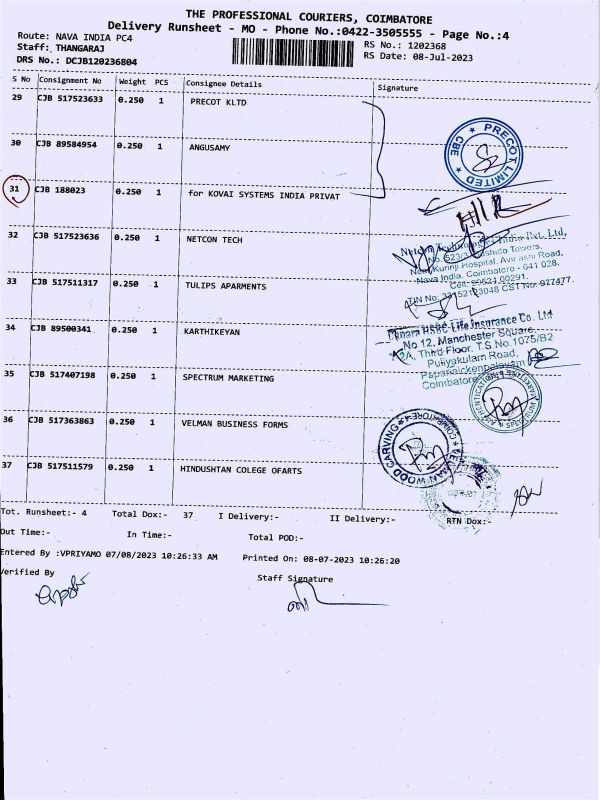 THE PROFESSIONAL COURIERS, COIMBATORE
Delivery Runsheet - MO - Phone No.:0422-3505555 - Page No.:4
Route: NAVA INDIA PC4
RS No.: 1202368
Staff: THANGARAJ
RS Date: 08-Jul-2023
DRS No.: DCJB120236804
S No Consignment No Weight PCS Consignee Details Signature
29 CJB 517523633 0.250 1 PRECOT KLTD
30 CJB 89584954 0.250 1 ANGUSAMY
PRECOT LIMITED ★ CBE ★
31 CJB 188023 0.250 1 for KOVAI SYSTEMS INDIA PRIVAT
32 CJB 517523636 0.250 1 NETCON TECH
Netcon Technologies India Pvt. Ltd,
No. 523/3, Towers,
Near Kurinji Hospital, Avinashi Road,
Nava India, Coimbatore - 641 028.
Cell: 99521 00291.
33 CJB 517511317 0.250 1 TULIPS APARMENTS
TIN No. 33152123048 CST No. 977477
34 CJB 89500341 0.250 1 KARTHIKEYAN
Canara HSBC Life Insurance Co. Ltd
No 12, Manchester Square,
Third Floor, T.S No.1075/B2
Puliyakulam Road,
Papanaickenpalayam
Coimbatore
35 CJB 517407198 0.250 1 SPECTRUM MARKETING
36 CJB 517363863 0.250 1 VELMAN BUSINESS FORMS
VELMAN WOOD CARVING ★ COIMBATORE ★
37 CJB 517511579 0.250 1 HINDUSHTAN COLEGE OFARTS
Tot. Runsheet:- 4 Total Dox:- 37 I Delivery:- II Delivery:- RTN Dox:-
Out Time:- In Time:- Total POD:-
Entered By :VPRIYAMO 07/08/2023 10:26:33 AM Printed On: 08-07-2023 10:26:20
Verified By
Staff Signature